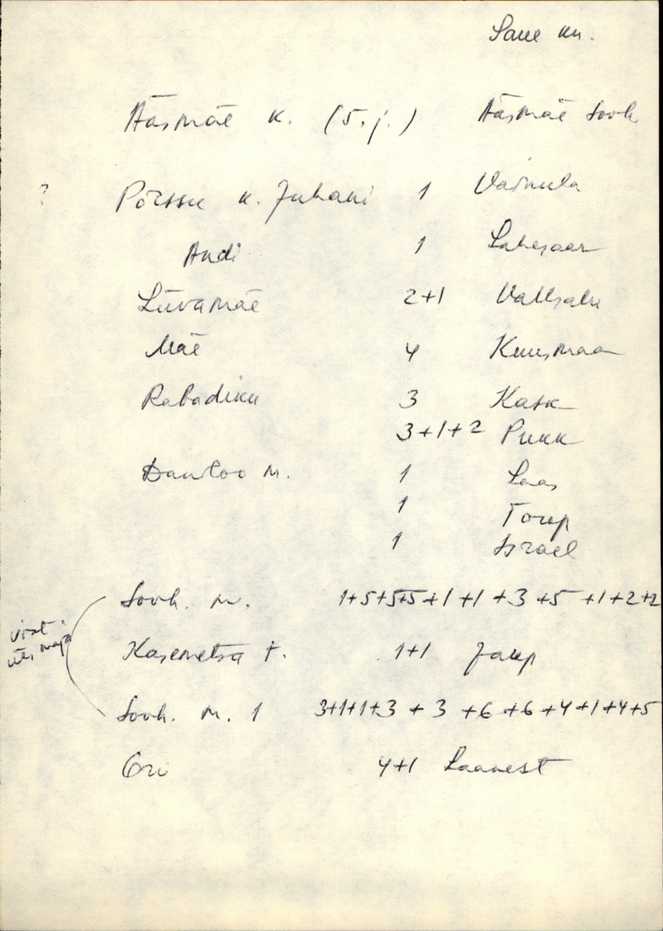 Saue kn.
Ääsmäe k. (5. j.) Ääsmäe sovh.
? Põrssu k. Juhani 1 Vainula
Andi 1 Lahesaar
Liivamäe 2+1 Vallsalu
Mäe 4 Kuusmaa
Rabadiku 3 Kask
3+1+2 Pukk
M. 1 Laas
1 Torup
1 Israel
Sovh. m. 1+5+5+5+1+1+3+5+1+2+2
vist üks maja
Kasemetsa t. 1+1 Jaup
Sovh. m. 1 3+1+1+3+3+6+6+4+1+4+5
Oru 4+1 Laanest